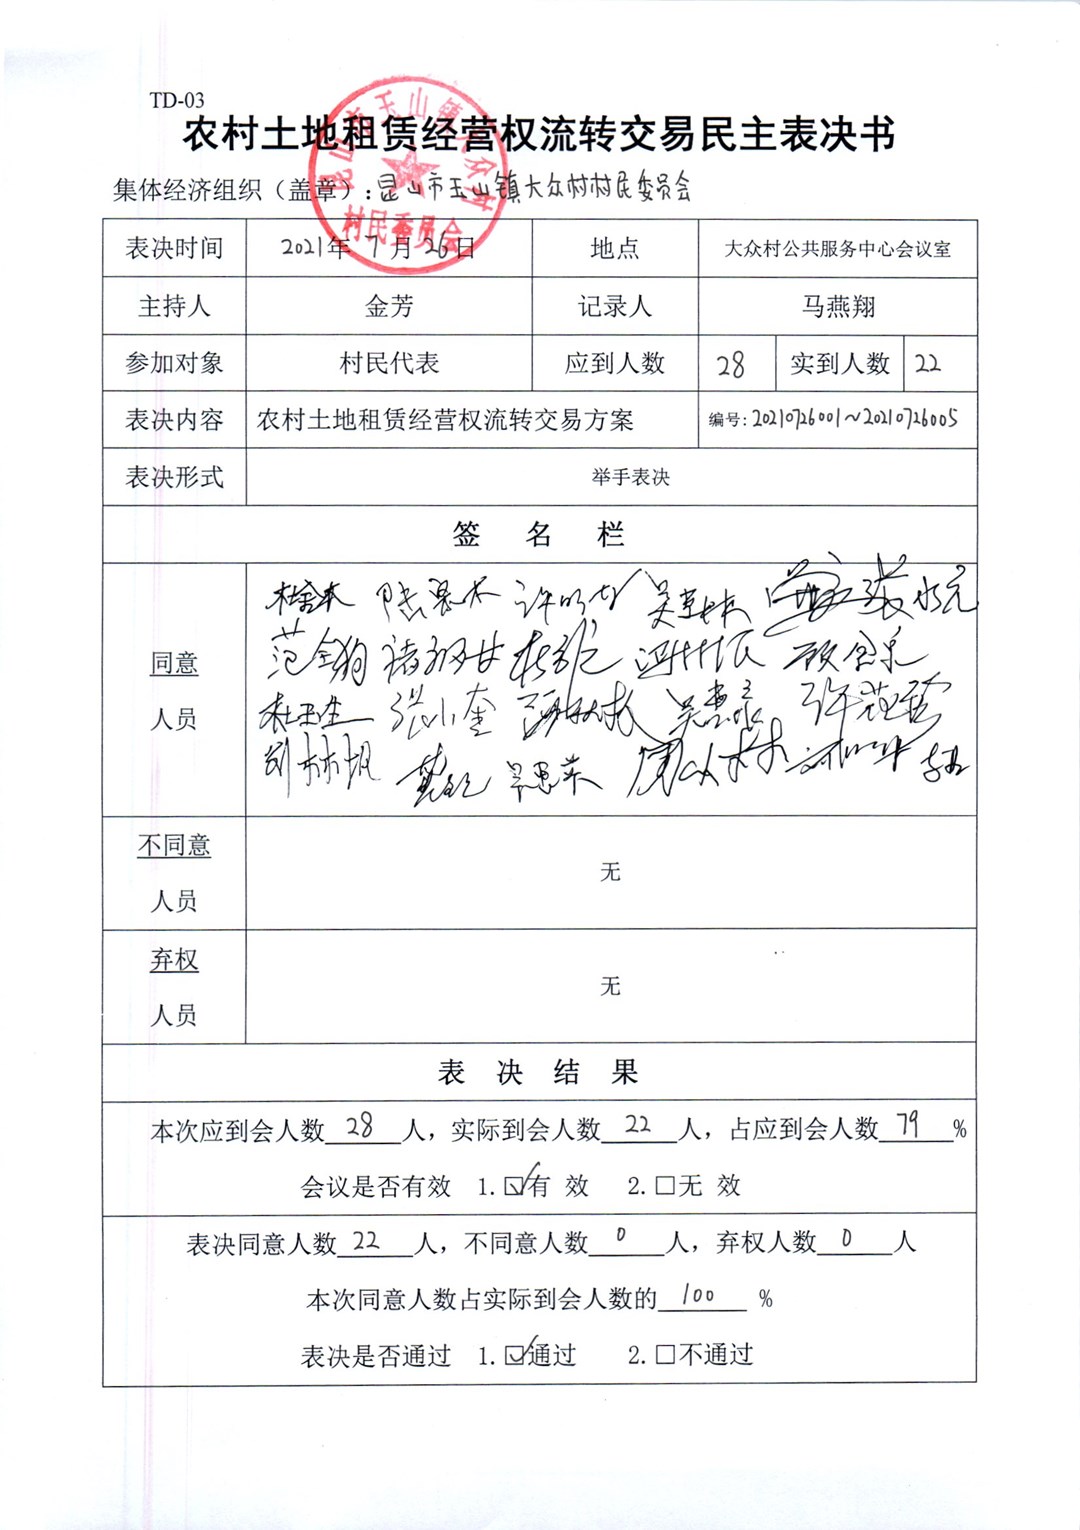 TD-03
农村土地租赁经营权流转交易民主表决书
集体经济组织（盖章）:昆山市玉山镇大众村村民委员会
昆山市玉山镇大众村
村民委员会
表决时间 2021年7月26日 地点 大众村公共服务中心会议室
主持人 金芳 记录人 马燕翔
参加对象 村民代表 应到人数 28 实到人数 22
表决内容 农村土地租赁经营权流转交易方案 编号:20210726001～20210726005
表决形式 举手表决
签 名 栏
同意
人员
范全狗
张小奎 吴惠永
不同意
人员
无
弃权
人员
无
表 决 结 果
本次应到会人数28人，实际到会人数22人，占应到会人数79%
会议是否有效 1.☑有 效 2.□无 效
表决同意人数22人，不同意人数0人，弃权人数0人
本次同意人数占实际到会人数的100 %
表决是否通过 1.☑通过 2.□不通过